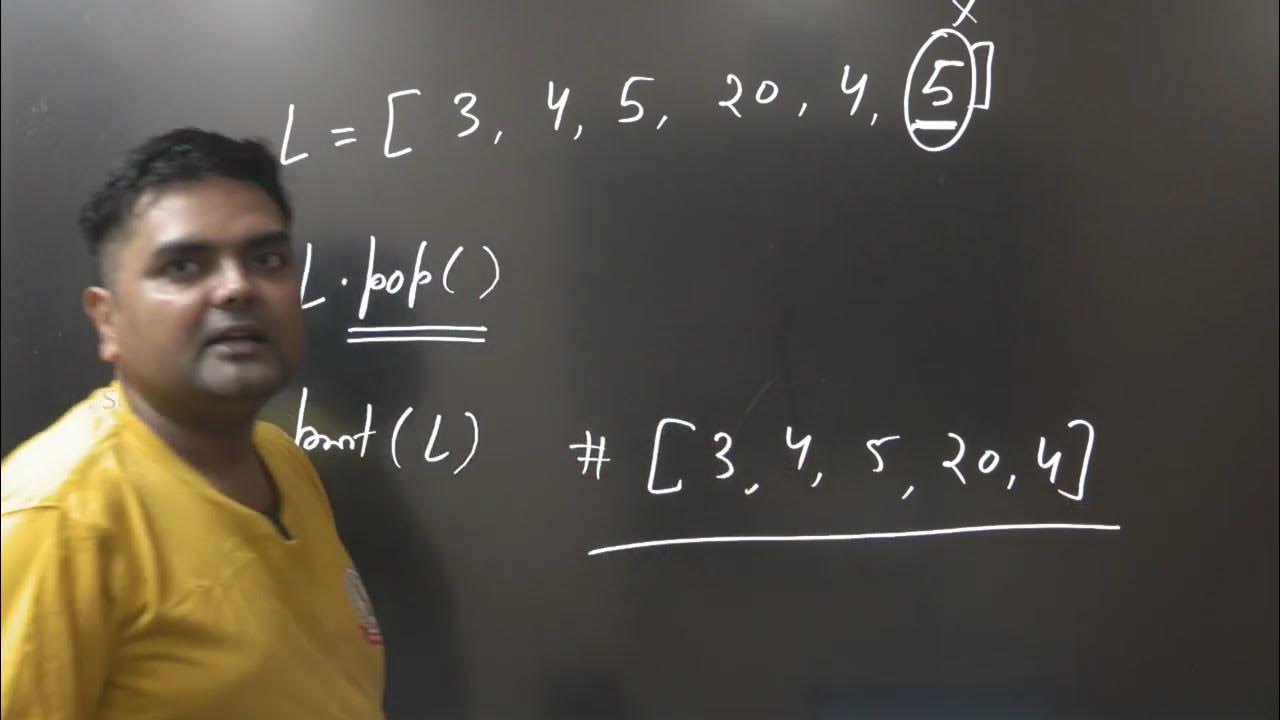 x
L = [ 3, 4, 5, 20, 4, 5]
L.pop()
print(L) # [3, 4, 5, 20, 4]